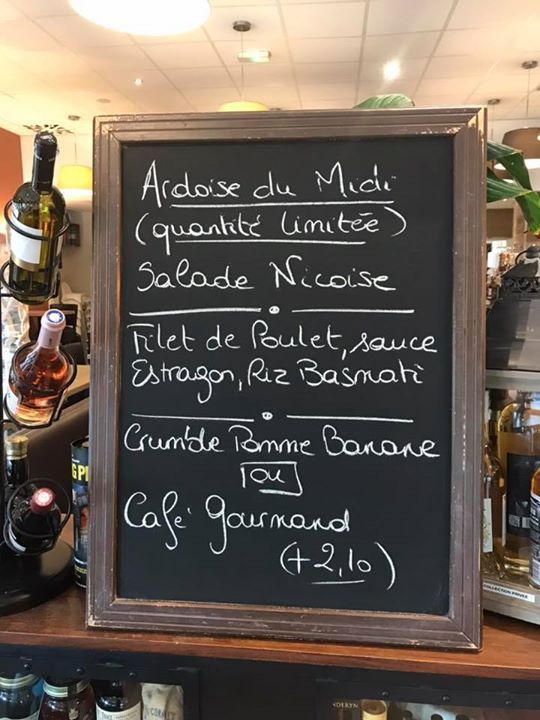 Ardoise du Midi
(quantité limitée)
Salade Nicoise
Filet de Poulet, sauce
Estragon, Riz Basmati
Crumble Pomme Banane
ou
Café Gourmand
(+2,10)
COLLECTION PRIVÉE